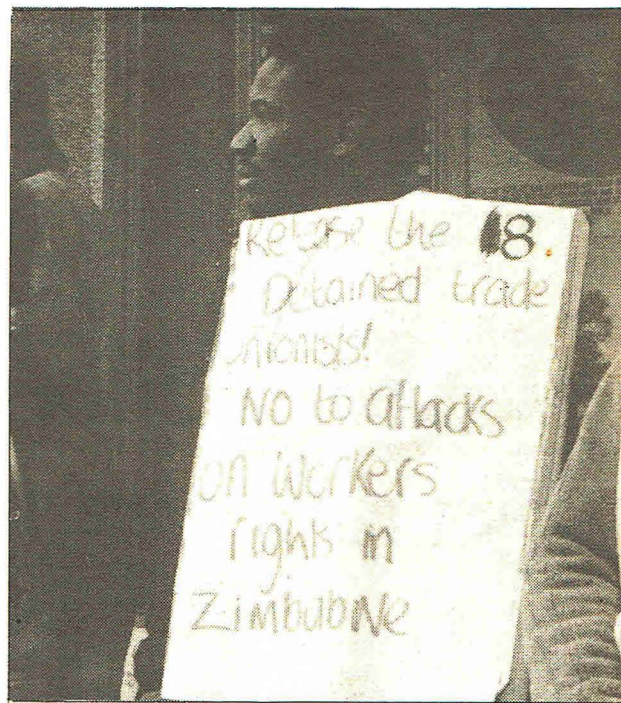 Release the 18.
Detained trade
unionists!
No to attacks
on workers
rights in
Zimbabwe